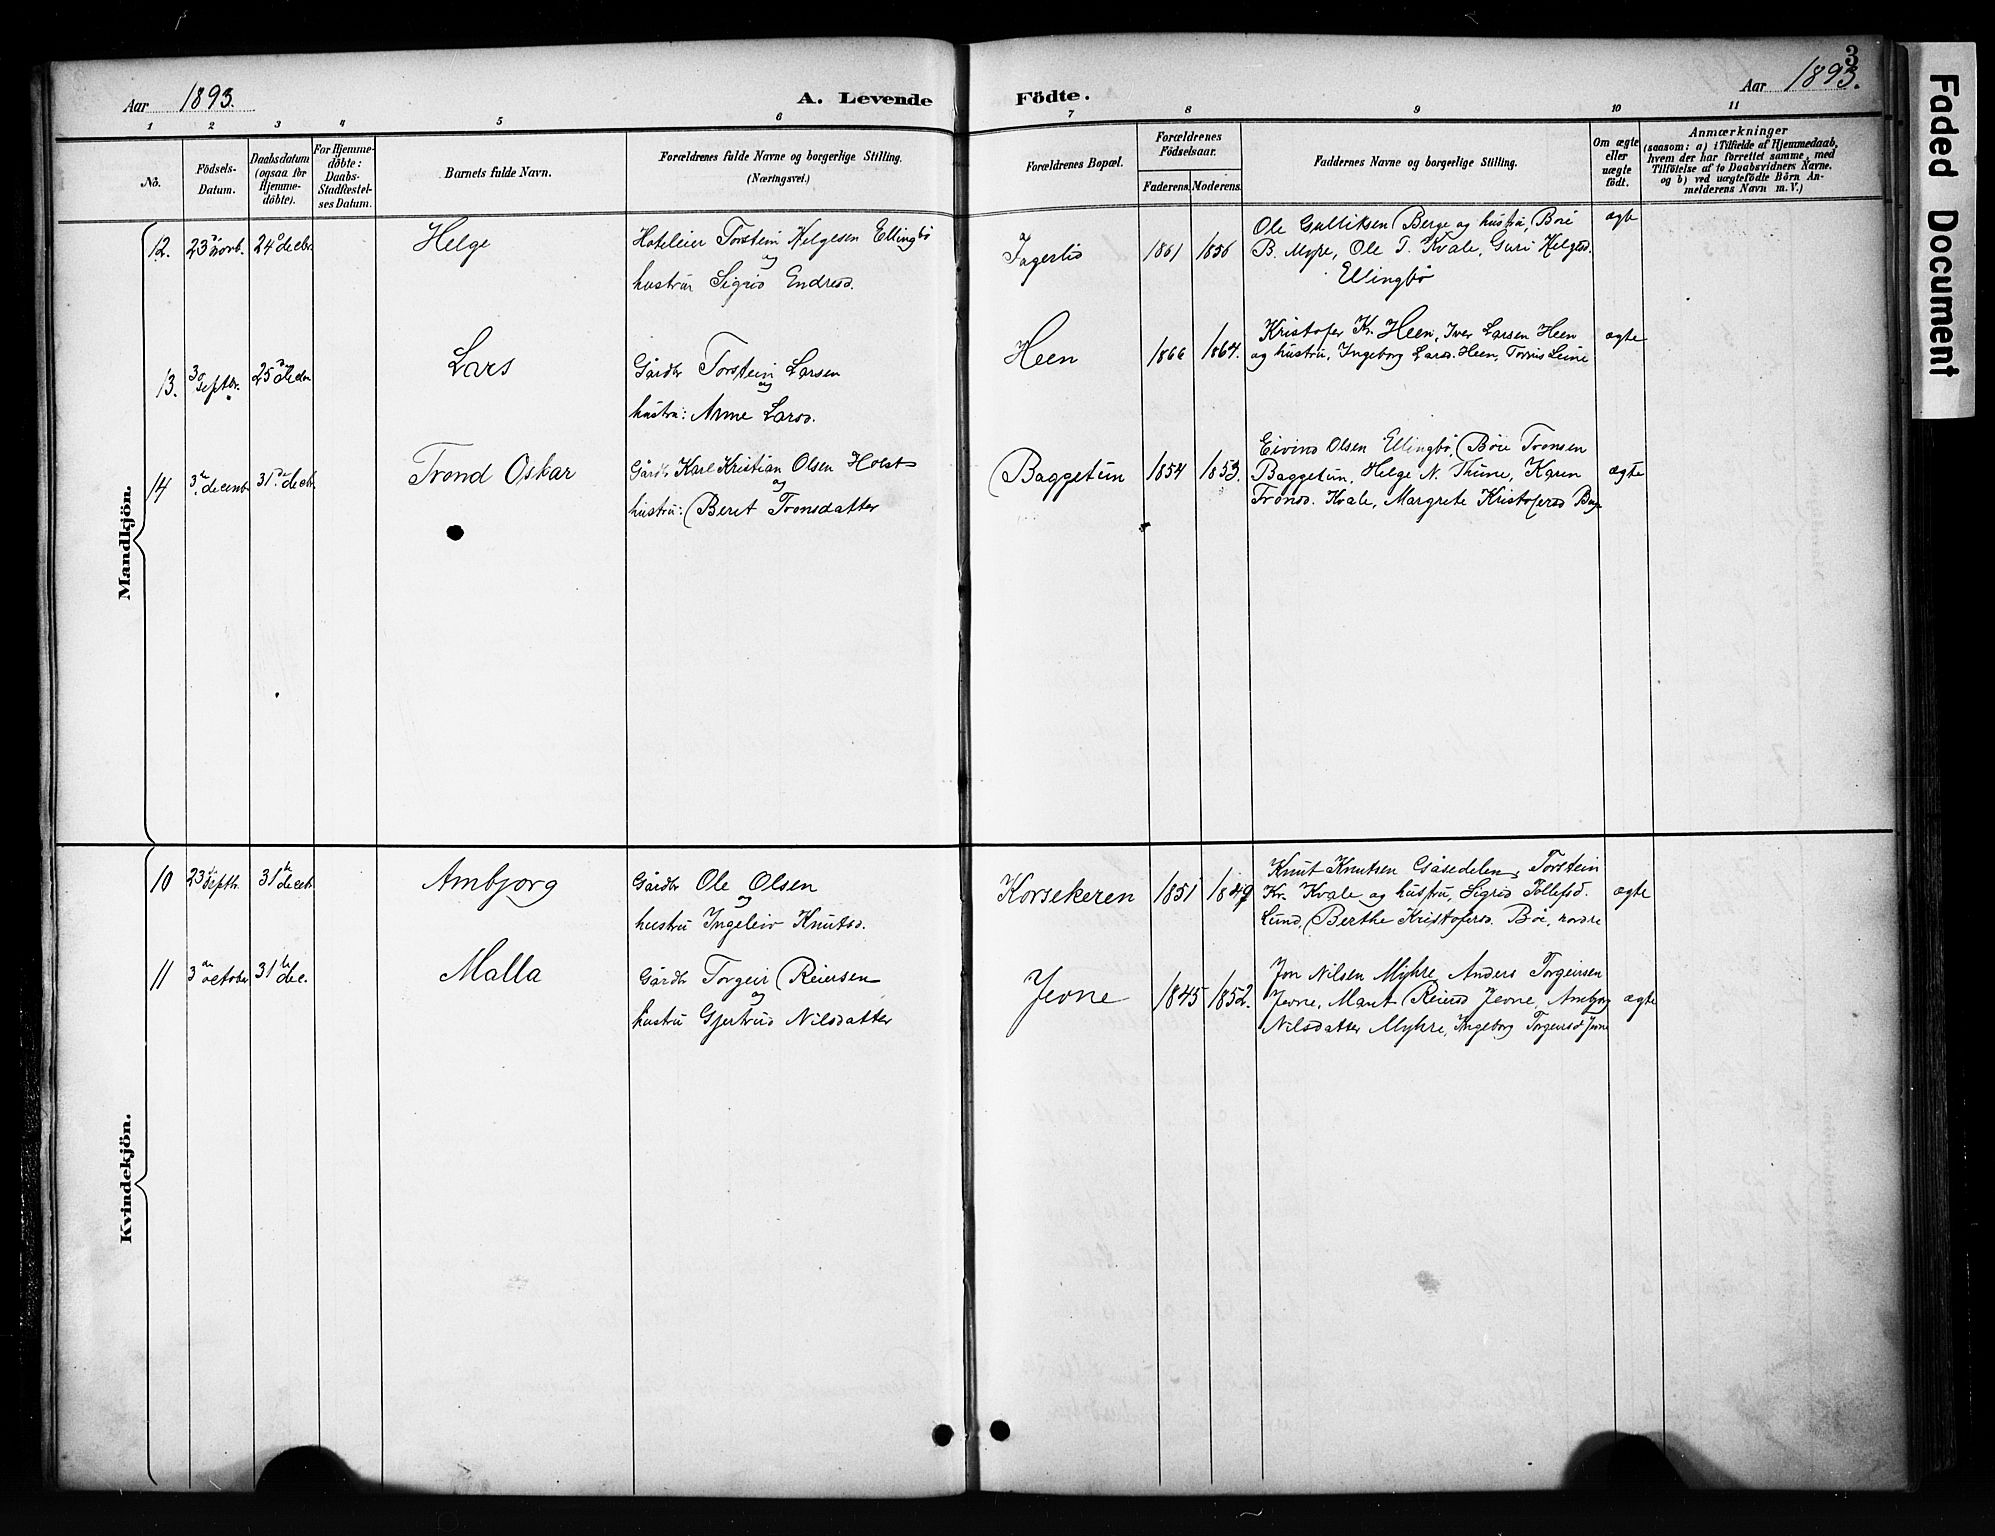 3
Aar 1893.
A. Levende
Födte.
Aar 1893.
1 2 3 4 5 6 7 8 9 10 11
No.
Födsels-
Datum.
Daabsdatum
(ogsaa for
Hjemme-
døbte).
For Hjemme-
døbte:
Daabs-
Stadfestel-
ses Datum.
Barnets fulde Navn.
Forældrenes fulde Navne og borgerlige Stilling.
(Næringsvei.)
Forældrenes Bopæl.
Forældrenes
Födselsaar.
Faderens. Moderens.
Faddernes Navne og borgerlige Stilling.
Om ægte
eller
uægte
født.
Anmærkninger
(saasom: a) i Tilfælde af Hjemmedaab,
hvem der har forrettet samme, med
Tilföielse af to Daabsvidners Navne,
og b) ved uægtefödte Börn An-
melderens Navn m. V.)
Mandkjön.
12. 23 novb. 24 decbr. Helge
Hoteleier Torstein Helgesen Ellingbø
og
hustru Sigrid Endresd.
1861 1856
Ole Gulliksen Berge og hustru, Boie
B. Myre, Ole T. Kvale, Guri Helgesd.
Ellingbø
ægte
13. 30 Septbr. 25 decbr Lars
Gårdbr Torstein Larsen
og
hustru: Anne Larsd.
Heen 1866 1864.
Kristofer Kr. Heen, Iver Larsen Heen
og hustru, Ingeborg Larsd. Heen, Tornis Leine
ægte
14 3 decemb 31 decbr. Trond Oskar
Gårdb. Karl Kristian Olsen Holst
og
hustru: Beret Tronsdatter
Baggetun 1854 1853.
Eivind Olsen Ellingbø, Bøie Tronsen
Baggetun, Helge N. Thune, Karen
Tronsd. Kvale, Margrete Kristofersd
ægte
Kvindekjön.
10 23 Septbr. 31 decbr. Ambjørg
Gårdbr Ole Olsen
og
hustru Ingeleiv Knutsd.
Korsekeren 1851 1849
Knut Knutsen Gåsedelen, Torstein
Kr. Kvale og hustru, Sigrid Tollefsd.
Lund, Berthe Kristofersd. Bøe, nordre
ægte
11 3 october 31 dec. Malla
Gårdbr Torgeir Reiersen
og
hustru Gjertrud Nilsdatter
Jevne 1845 1852.
Jon Nilsen Myhre, Anders Torgeirsen
Jevne, Marit Reiersd Jevne, Ambjørg
Nilsdatter Myhre, Ingeborg Torgeirsd Jevne
ægte
Faded Document